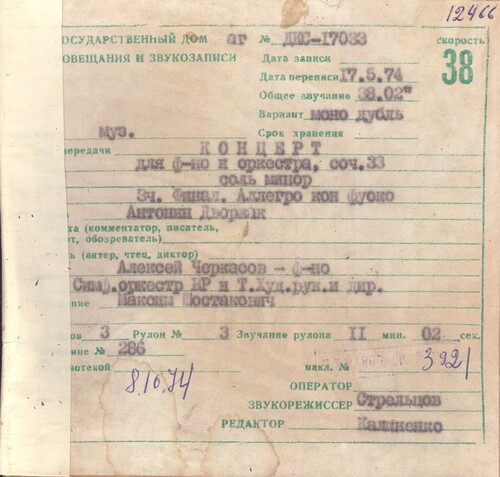 12466
ОСУДАРСТВЕННЫЙ ДОМ аг № ДКС-17033 скорость
ОВЕЩАНИЯ И ЗВУКОЗАПИСИ Дата записи 38
Дата переписи 17.5.74
Общее звучание 38.02"
Вариант моно дубль
муз. Срок хранения
передачи КОНЦЕРТ
для ф-но и оркестра, соч.33
соль минор
3ч. Финал. Аллегро кон фуоко
Антонин Дворжак
та (комментатор, писатель,
т, обозреватель)
ь (актер, чтец, диктор)
Алексей Черкасов - ф-но
Симф.оркестр ВР и Т.Худ.рук.и дир.
ние Максим Шостакович
ов 3 Рулон № 3 Звучание рулона II мин. 02 сек.
ние № 286
отекой 8.10.74 накл. № 3921
ОПЕРАТОР
ЗВУКОРЕЖИССЕР Стрельцов
РЕДАКТОР Калиненко